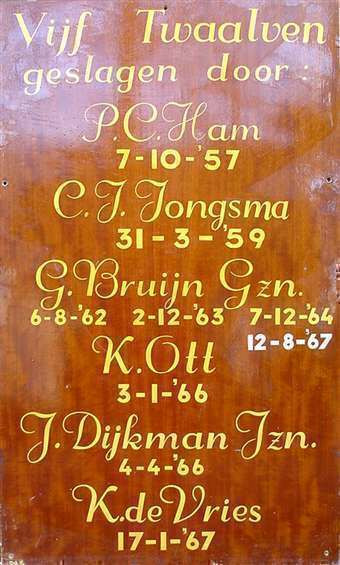 Vijf Twaalven
geslagen door:
P.C. Ham
7-10-'57
C.J. Jongsma
31-3-'59
G. Bruijn Gzn.
6-8-'62 2-12-'63 7-12-'64
12-8-'67
K. Ott
3-1-'66
J. Dijkman Jzn.
4-4-'66
K. de Vries
17-1-'67